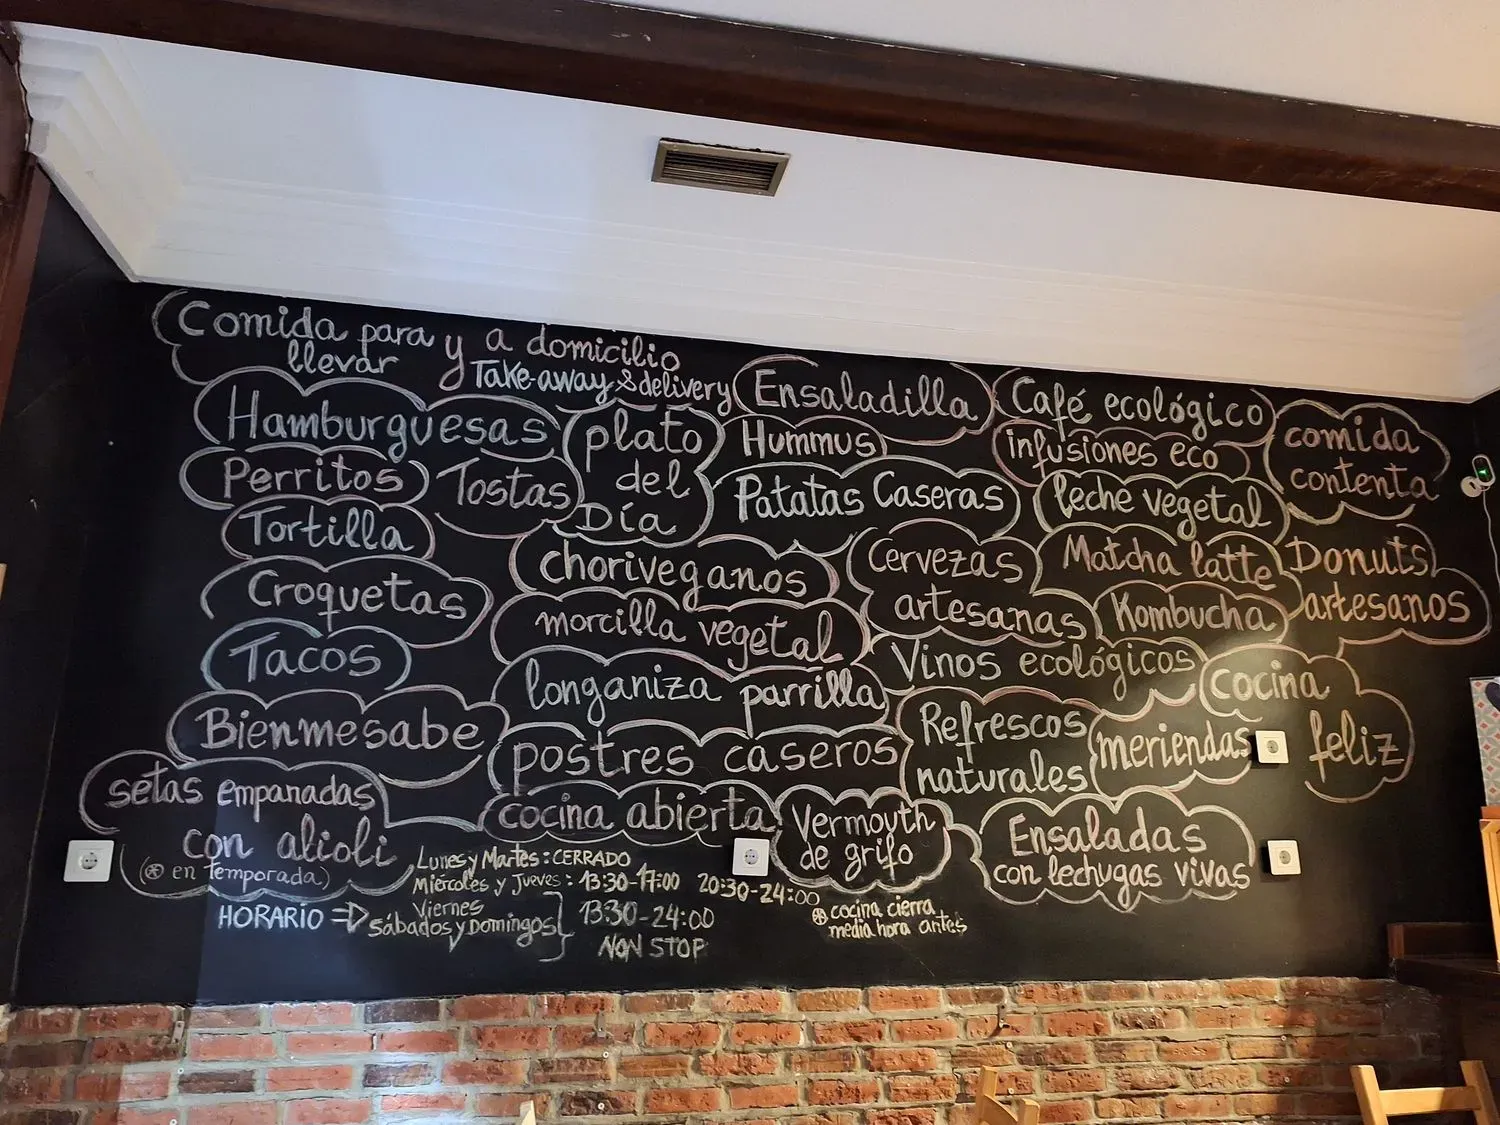 Comida para
llevar
y a domicilio
Take-away & delivery
Ensaladilla
Café ecológico
Hamburguesas
plato
del
Día
Hummus
infusiones eco
comida
contenta
Perritos
Tostas
Patatas Caseras
leche vegetal
Tortilla
choriveganos
Cervezas
artesanas
Matcha latte
Donuts
artesanos
Croquetas
morcilla vegetal
Kombucha
Tacos
longaniza parrilla
Vinos ecológicos
cocina
feliz
Bienmesabe
postres caseros
Refrescos
naturales
meriendas
setas empanadas
con alioli
(* en temporada)
cocina abierta
Vermouth
de grifo
Ensaladas
con lechugas vivas
HORARIO ⇒
Lunes y Martes: CERRADO
Miércoles y Jueves: 13:30-17:00 20:30-24:00
Viernes
Sábados y Domingos
13:30-24:00
NON STOP
* cocina cierra
media hora antes